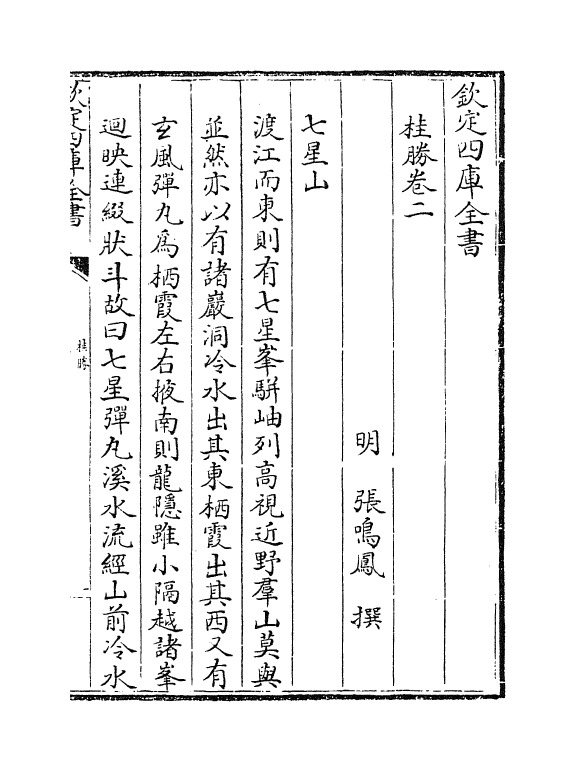 欽定四庫全書
桂勝卷二
明 張鳴鳳 撰
七星山
渡江而東則有七星峯駢岫列高視近野羣山莫與
並然亦以有諸巖洞冷水出其東栖霞出其西又有
玄風彈丸為栖霞左右掖南則龍隱雖小隔越諸峯
迴映連綴狀斗故曰七星彈丸溪水流經山前冷水
欽定四庫全書
桂勝